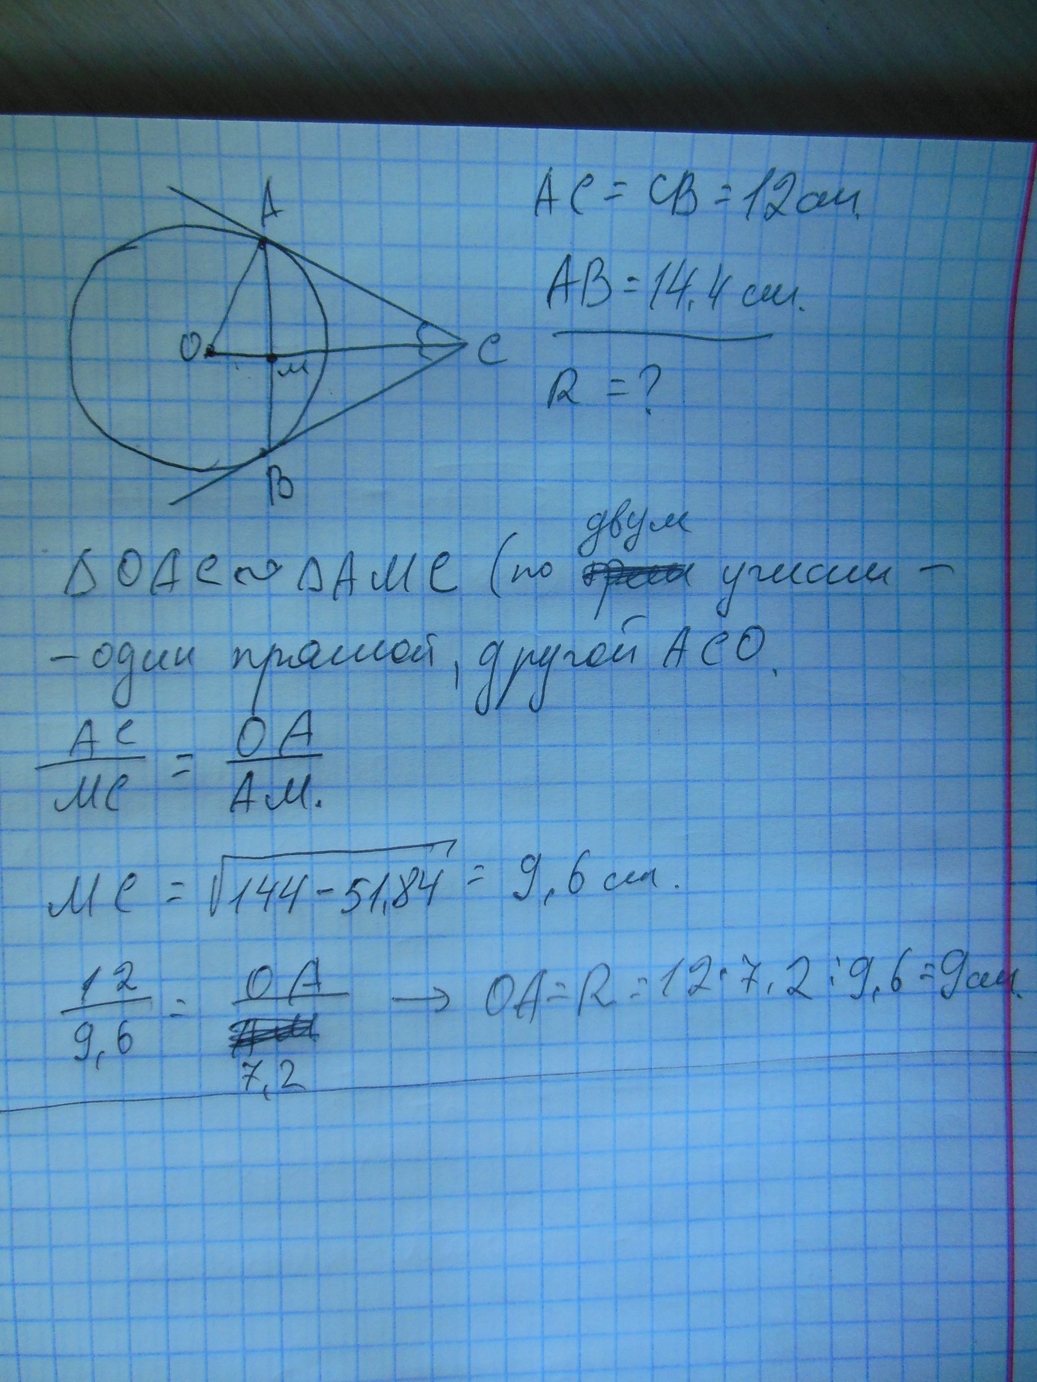 A
O
M
C
B
AC = CB = 12 см.
AB = 14,4 см.
R = ?
Δ OAC ~ Δ AMC (по двум углам –
– один прямой, другой ACO.
AC/MC = OA/AM.
MC = √144 – 51,84 = 9,6 см.
12/9,6 = OA/7,2 → OA = R = 12 · 7,2 : 9,6 = 9 см.